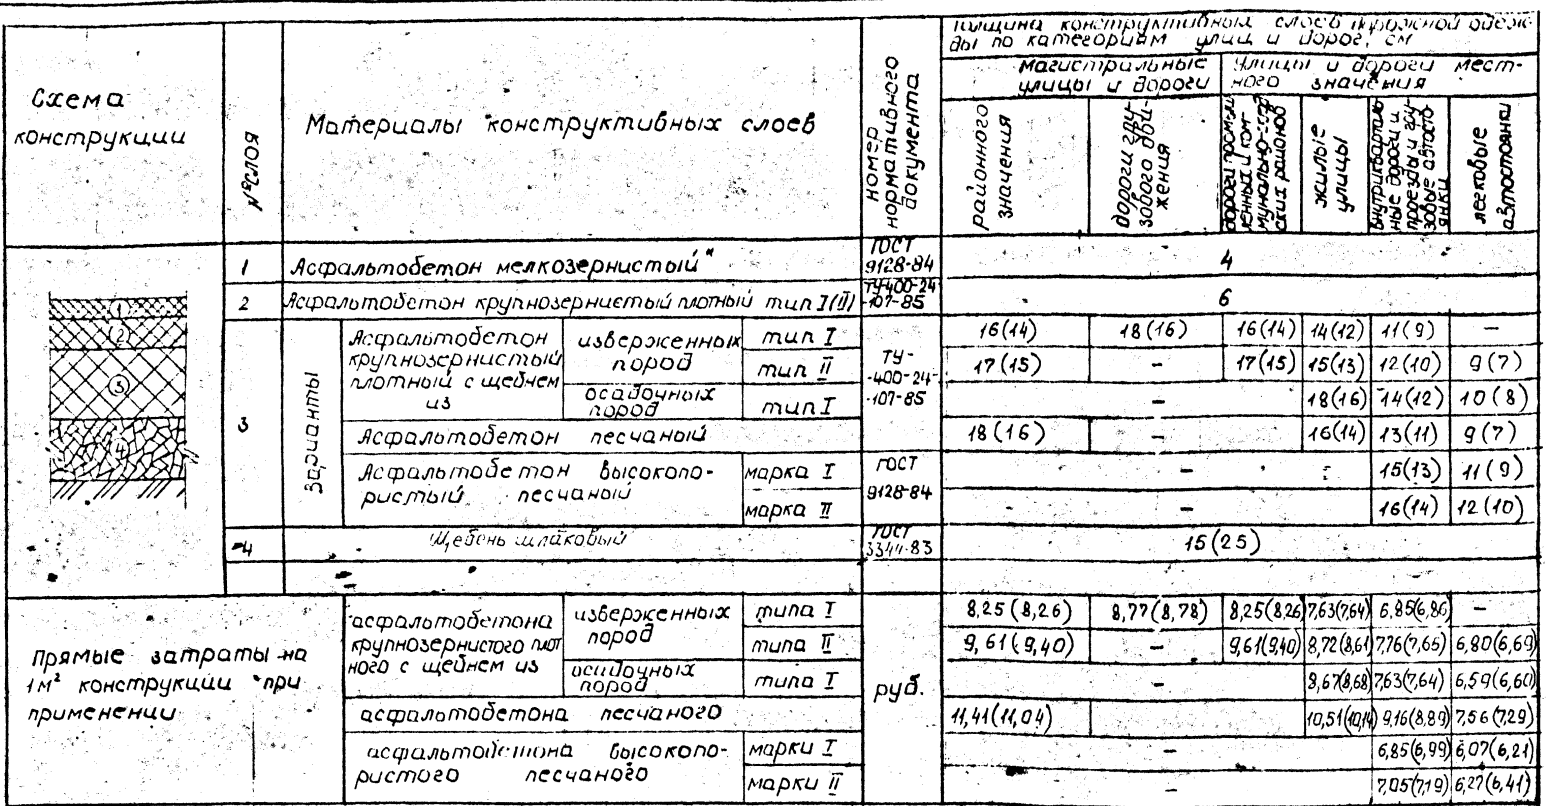 Толщина конструктивных слоев дорожной одеж-
ды по категориям улиц и дорог, см
Схема
конструкции
№ слоя
Материалы конструктивных слоев
номер
нормативного
документа
магистральные
улицы и дороги
улицы и дороги мест-
ного значения
районного
значения
дороги гру-
зового дви-
жения
дороги промыш-
ленных и ком-
мунально-
ских районов
жилые
улицы
внутрикварталь-
ные дороги и
проезды и гру-
зовые автосто-
янки
легковые
автостоянки
1 Асфальтобетон мелкозернистый ГОСТ 9128-84 4
2 Асфальтобетон крупнозернистый плотный тип I(II) ТУ400-24-107-85 6
1
2
3
4
3
Варианты
Асфальтобетон
крупнозернистый
плотный с щебнем
из
изверженных
пород
осадочных
пород
ТУ-
-400-24-
-107-85
тип I 16(14) 18(16) 16(14) 14(12) 11(9) —
тип II 17(15) – 17(15) 15(13) 12(10) 9(7)
тип I – 18(16) 14(12) 10(8)
Асфальтобетон песчаный 18(16) – 16(14) 13(11) 9(7)
Асфальтобетон высокопо-
ристый песчаный
ГОСТ
9128-84
марка I – 15(13) 11(9)
марка II – 16(14) 12(10)
4 Щебень шлаковый ГОСТ 3344-83 15(25)
Прямые затраты на
1м² конструкции при
применении
асфальтобетона
крупнозернистого плот
ного с щебнем из
изверженных
пород
осадочных
пород
руб.
типа I 8,25(8,26) 8,77(8,78) 8,25(8,26 7,63(7,64) 6,85(6,86) –
типа II 9,61(9,40) – 9,61(9,40) 8,72(8,61) 7,76(7,65) 6,80(6,69)
типа I – 8,67(8,68) 7,63(7,64) 6,59(6,60)
асфальтобетона песчаного 11,41(11,04) 10,51(10,14) 9,16(8,89) 7,56(7,29)
асфальтобетона высокопо-
ристого песчаного
марки I – 6,85(6,99) 6,07(6,21)
марки II – 7,05(7,19) 6,27(6,41)